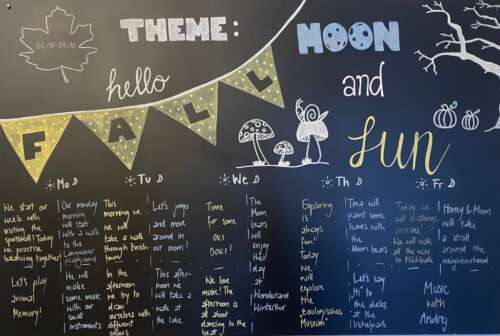 03.10-07.10
THEME: MOON
hello
and
FALL
sun
Mo
Tu
We
Th
Fr
We start our
week with
visiting the
sportshall! Today
we practice
balancing together!
Let's play
animal
Memory!
Our monday
morning
will start
with a walk
to the
Langmauer
playground
We will
make
some music
with our
small
instruments
This
morning we
will
take a walk
through Zürich
In the
afternoon
we try to
draw
ourselves with
different
colors
Let's jump
and move
around in
our room!
This after-
noon we
will take a
walk at
the lake
Time
for some
Oki
Doki!
We love
music! The
afternoon is
all about
dancing to the
The
Moon
Bears
will
enjoy
their
day
at
Wonderland
Winterthur
Exploring
is
always
fun!
Today
we
will
explore
the
"Zoologisches
Museum"
Tina will
paint some
trees with
the
Moon bears
Let's say
"hi" to
the ducks
at the
Irchelpark
Today we
will challenge
ourselves!
We will walk
all the way
to Milchbuck
Honey & Moon
will take
a stroll
around the
neighbourhood
Music
with
Andrej